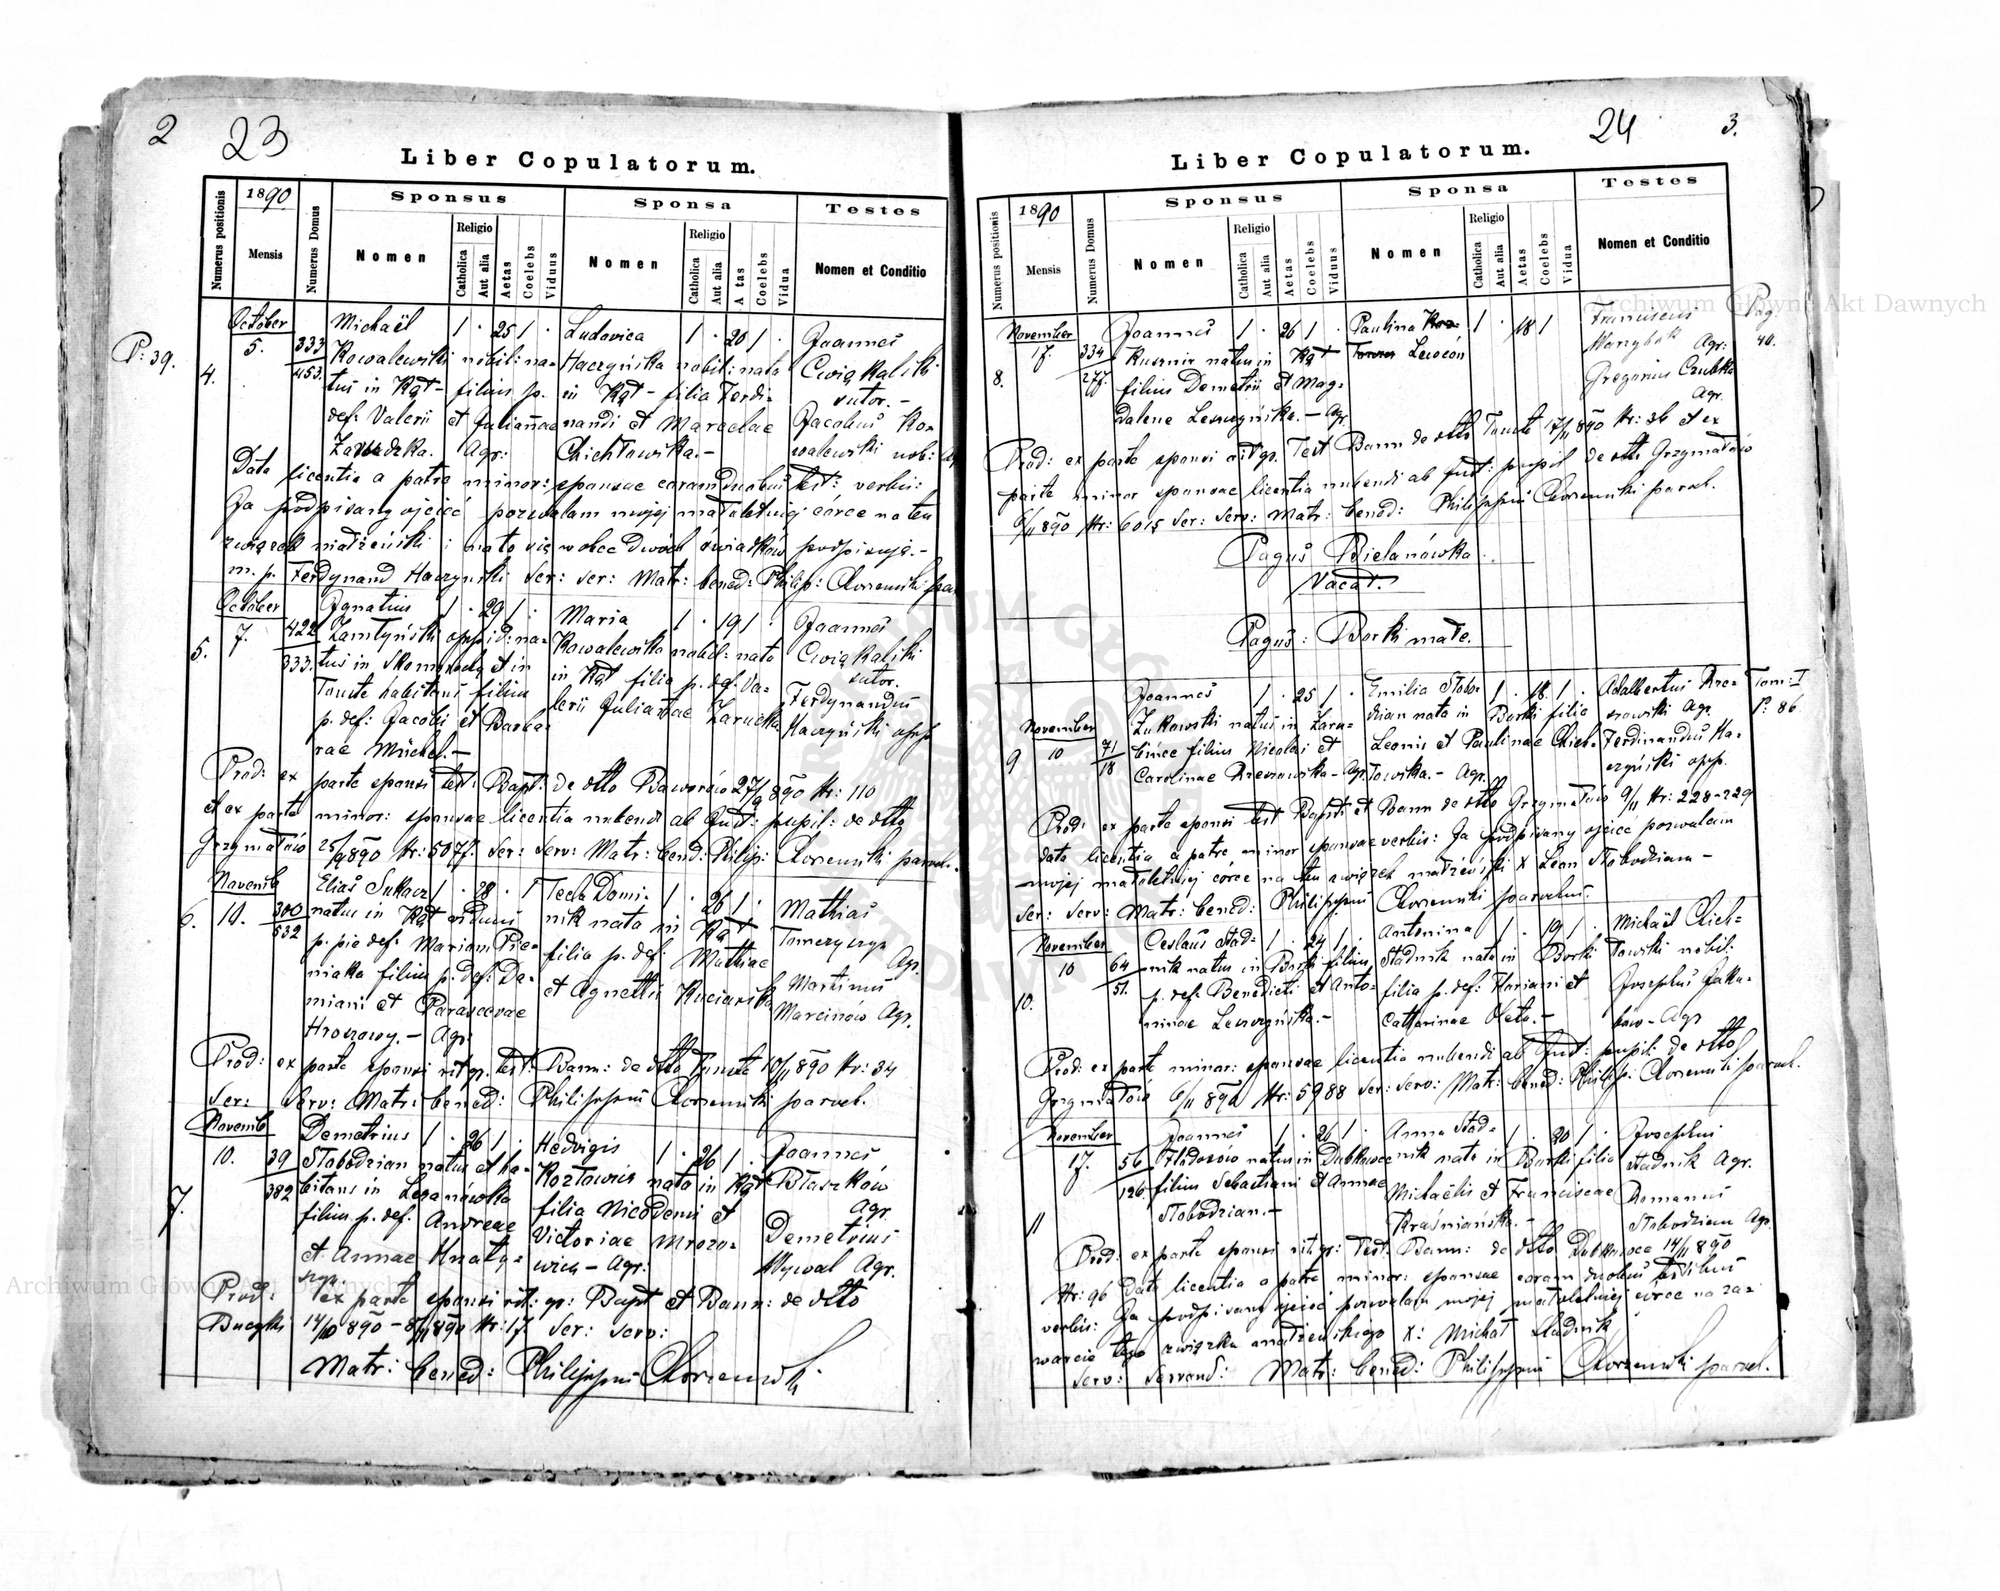 2 23
Liber Copulatorum.
Numerus positionis
1890
Mensis
Numerus Domus
Sponsus
Nomen
Religio
Catholica
Aut alia
Aetas
Coelebs
Viduus
Sponsa
Nomen
Religio
Catholica
Aut alia
A tas
Coelebs
Vidua
Testes
Nomen et Conditio
P: 39.
4.
October
5.
333
453.
Michaël
Kowalewski nobil: na-
tus in Kąt - filius p.
def: Valerii et Juliannae
Zarudzka. Agr:
1 . 25 1 .
Ludovica
Haczyńska nobil: nata
in Kąt - filia Ferdi-
nandi et Marcelae
Chichłowska. -
1 . 20 1 .
Joannes
Ćwiąkalski
sutor. -
Jacobus Ko-
walewski nob:
Data licentia a patre minor: sponsae coram duobus test: verbis:
Ja podpisany ojciéc pozwalam mojej małoletniej córce na ten
związek małżeński i na to się wobec dwóch świadków podpisuję. -
m. p. Ferdynand Haczyński Ser: ser: Matr: bened: Philip:
5.
October
7.
422
333.
Ignatius
Zamłyński oppid: na-
tus in Skomorochy et in
Touste habitans filius
p. def: Jacobi et Barba-
rae Michal. -
1 . 29 1 .
Maria
Kowalewska nobil: nata
in Kąt filia p. def. Va-
lerii Juliannae Zarudzka
1 . 19 1 .
Joannes
Ćwiąkalski
sutor.
Ferdynandus
Haczyński opp.
Prod: ex parte sponsi test: Bapt: de dtto Baworów 27/9 890 Nr: 110
et ex parte minor: sponsae licentia nubendi ab Jud: pupil: de dtto
Grzymałów 25/9 890 Nr: 5077. Ser: Serv: Matr: bened: Philip: paroch.
6.
Novemb
10.
300
532
Elias Sukacz
natus in Kąt viduus
p. pie def: Mariam Pie-
niaka filius p. def: Da-
miani et Parascevae
Hrozowy. - Agr:
1 . 28 . 1
Tecla Domi-
nik nata in Kąt
filia p. def: Mathiae
et Agnetis Kuciarska
1 . 26 1 .
Mathias
Agr.
Martinus
Marcinów Agr.
Prod: ex parte sponsi rit gr. test: Bann: de dtto Touste 10/11 890 Nr: 34
Ser: Serv: Matr: bened: Philippus paroch.
7.
Novemb
10.
39
382
Demetrius
Słobodzian natus et ha-
bitans in Lezanówka
filius p. def. Andreae
et Annae Hnaty-
szyn.
1 . 26 1 .
Hedvigis
Kozłowicz nata in Kąt
filia Nicodemi et
Victoriae Mrozo-
wicz - Agr:
1 . 26 1 .
Joannes
Błaszków
Agr.
Demetrius
Wywał Agr.
Prod: ex parte sponsi rit: gr: Bapt et Bann: de dtto
Buczyki 14/10 890 - 8/11 890 Nr: 17. Ser: Serv:
Matr: bened: Philippus
24 3.
Liber Copulatorum.
Numerus positionis
1890
Mensis
Numerus Domus
Sponsus
Nomen
Religio
Catholica
Aut alia
Aetas
Coelebs
Viduus
Sponsa
Nomen
Religio
Catholica
Aut alia
Aetas
Coelebs
Vidua
Testes
Nomen et Conditio
8.
November
17.
334
277.
Joannes
Kusznir natus in Kąt
filius Demetrii et Mag-
dalene Leszczyńska. - Agr.
1 . 26 1 .
Paulina
Lewcón
1 . 18 1
Franciscus
Agr:
Gregorius Czubka
Agr.
Pag.
40.
Prod: ex parte sponsi rit gr. Test Bann de dtto Touste 17/11 890 Nr: 36 et ex
parte minor sponsae licentia nubendi ab Jud: pupil de dtto Grzymałów
6/11 890 Nr: 6015 Ser: Serv: Matr: bened: Philippus paroch.
Pagus Bielanówka
Vacat.
Pagus: Borki małe.
9
November
10
71
18
Joannes
Żukowski natus in Zaru-
bińce filius Nicolai et
Carolinae Rzeszowska - Agr.
1 . 25 1 .
Emilia Słobo-
dzian nata in Borki filia
Leonis et Paulinae Chich-
łowska. - Agr.
1 . 18. 1 .
Adalbertus Rze-
szowski Agr.
Ferdinandus Ha-
czyński opp.
Tom: I
P: 86
Prod: ex parte sponsi test Bapti et Bann de dtto Grzymałów 9/11 Nr: 228-229
data licentia a patre minor sponsae verbis: Ja podpisany ojciéc pozwalam
mojej małoletniej córce na ten związek małżeński X Leon Słobodzian -
Ser: Serv: Matr: bened: Philippus parochus.
10.
November
10
64
51.
Ceslaus Stad-
nik natus in Borki filius
p. def: Benedicti et Anto-
ninae Leszczyńska. -
1 . 24 1 .
Antonina
Stadnik nata in Borki
filia p. def: Floriani et
Catharinae Oleta. -
1 . 19 1 .
Michaël Chich-
łowski nobil:
Josephus Jaku-
bów - Agr
Prod: ex parte minor: sponsae licentia nubendi ab Jud: pupil: de dtto
Grzymałów 6/11 890 Nr: 5988 Ser: Serv: Matr: bened: Philip: paroch.
11
November
17.
56
126
Joannes
natus in Dubkowce
filius Sebastiani et Annae
Słobodzian. -
1 . 26 1 .
Anna Stad-
nik nata in Borki filia
Michaëlis et Franciscae
Kraśniańska. -
1 . 20 1 .
Josephus
Stadnik Agr.
Romanus
Słobodzian Agr.
Prod: ex parte sponsi rit gr: Test. Bann: de dtto Dubkowce 14/11 890
Nr: 96 Data licentia a patre minor: sponsae coram duobus testibus
verbis: Ja podpisany ojciéc pozwalam mojej małoletniej córce na za-
warcie tego związku małżeńskiego X: Michał Stadnik
Serv: Servand: Matr: bened: Philippus paroch.
Archiwum Główne Akt Dawnych
Archiwum Główne Akt Dawnych